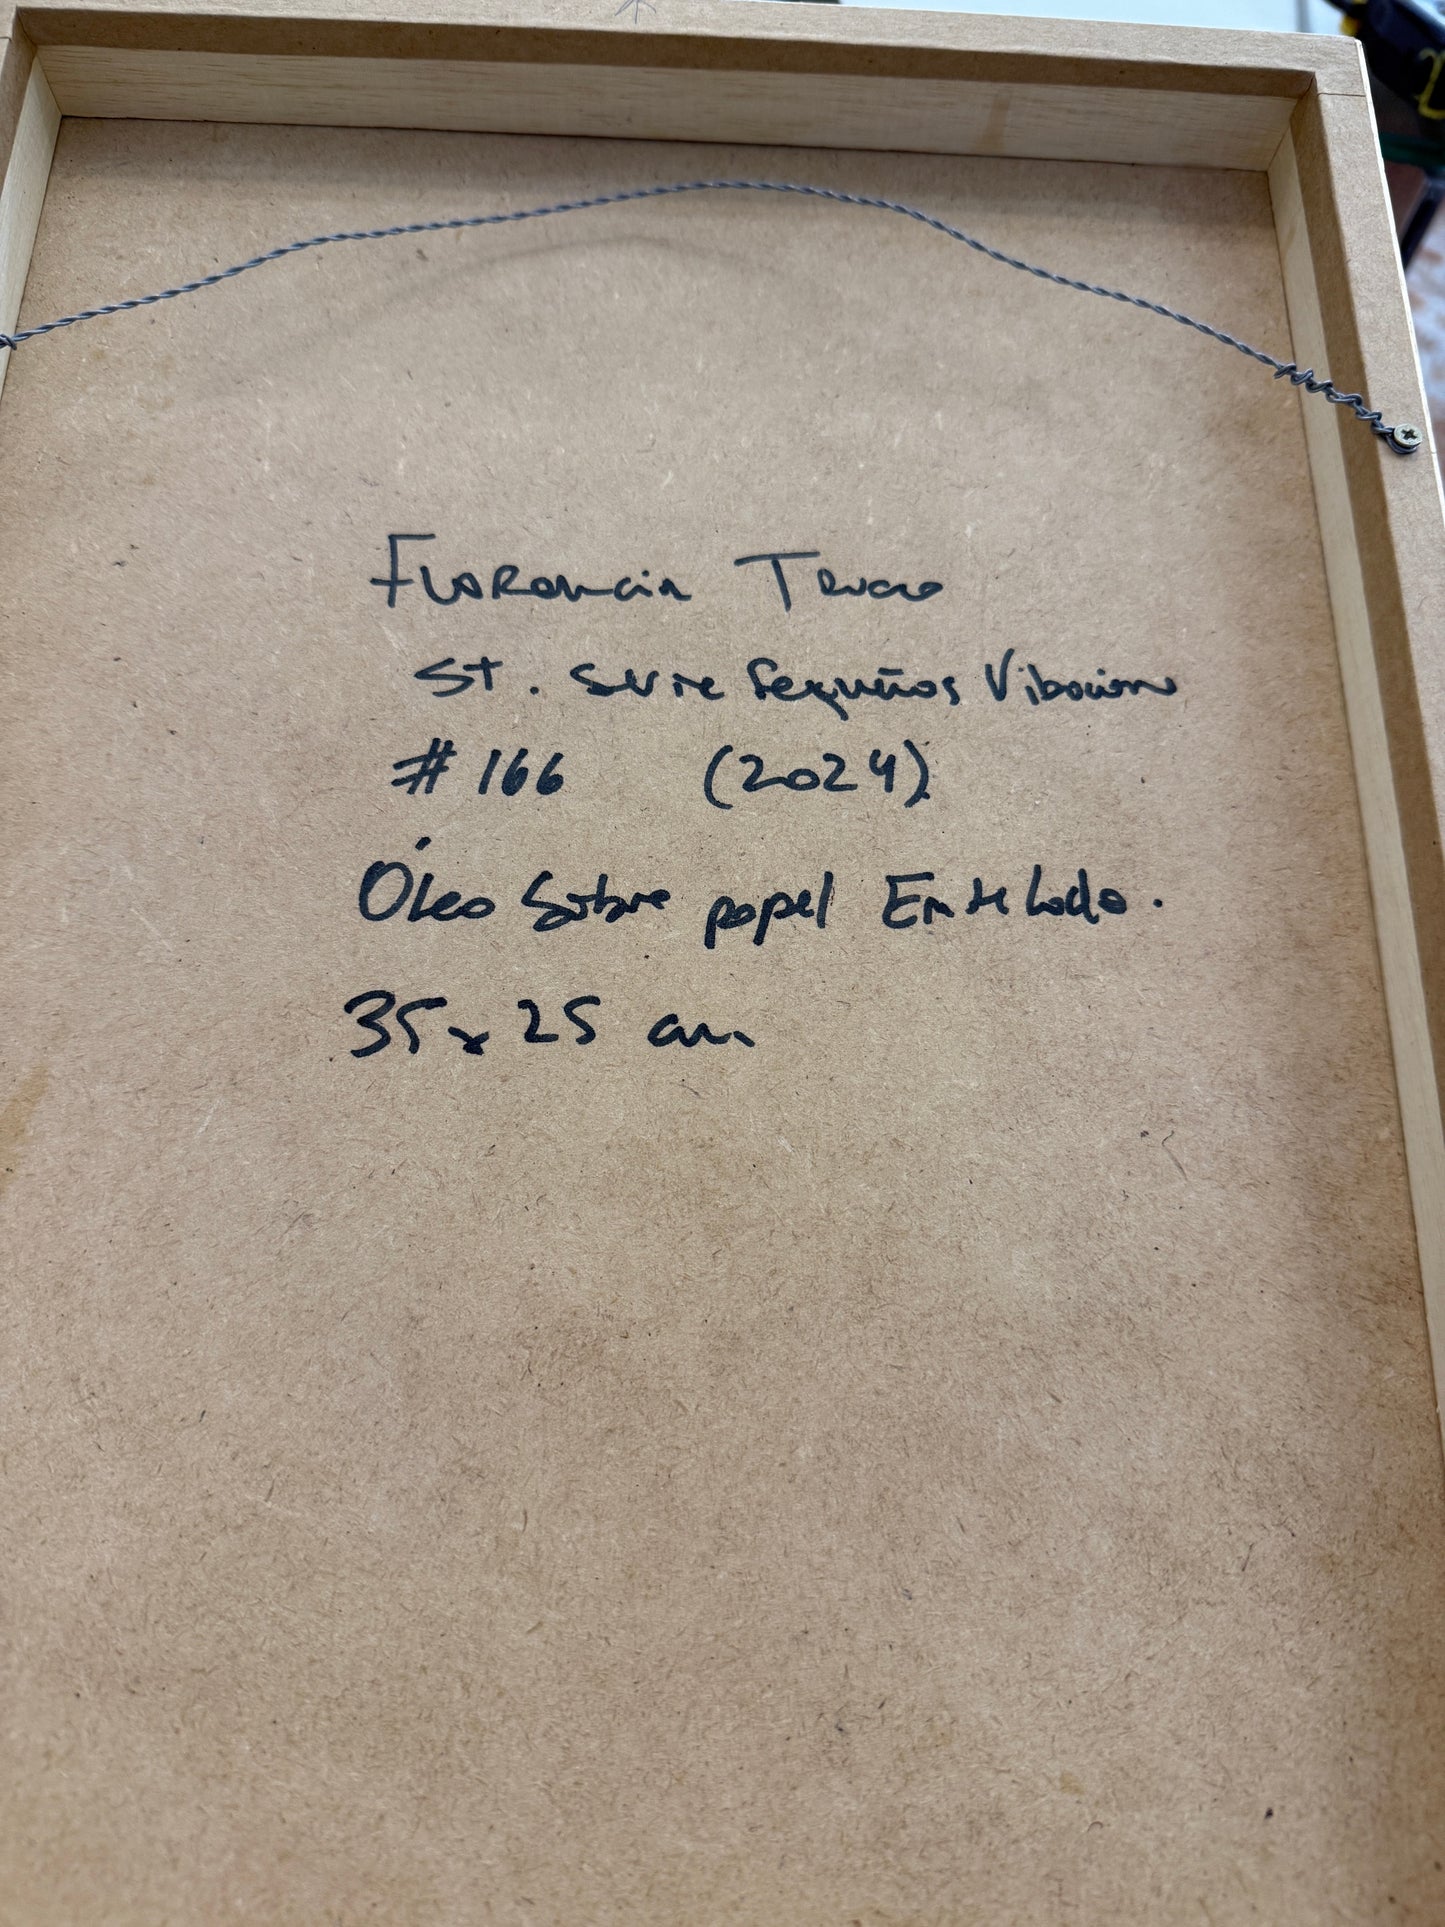 Florencia Trucco
St. Serie Pequeños Vibraciones
#166 (2024)
Óleo Sobre papel Entelado.
35x25 cm